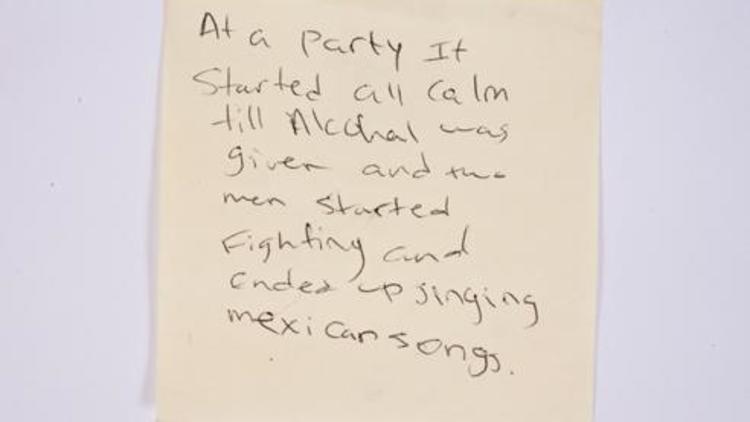 At a party It
Started all Calm
till Alcohal was
given and two
men started
Fighting and
ended up singing
mexican songs.